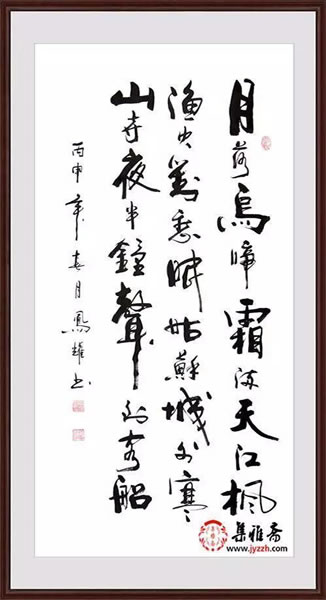 月落烏啼霜满天江楓
漁火對愁眠姑蘇城外寒
山寺夜半鐘聲到客船
丙申年春月鳳耀书
集雅斋
www.jyzzh.com